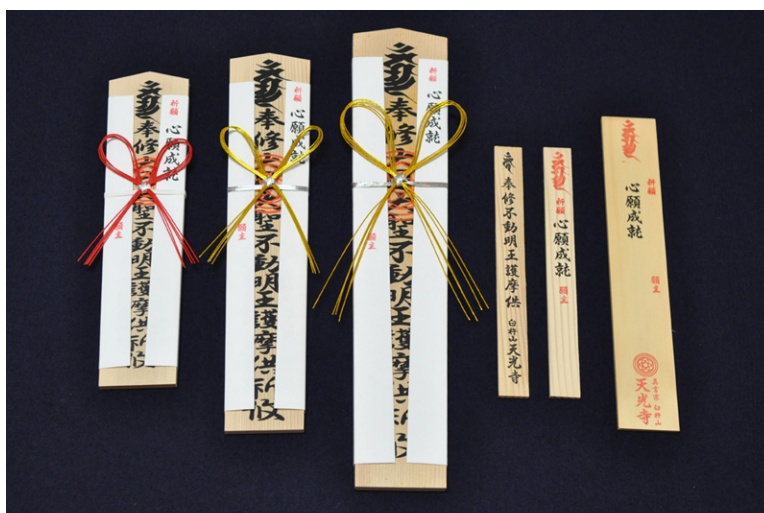 祈願
心願成就
願主
奉修 聖不動明王護摩供
祈願
心願成就
願主
奉修 聖不動明王護摩供
祈願
心願成就
願主
奉修 聖不動明王護摩供
奉修不動明王護摩供 臼杵山 天光寺
祈願 心願成就 願主
祈願
心願成就
願主
真言宗 臼杵山
天光寺